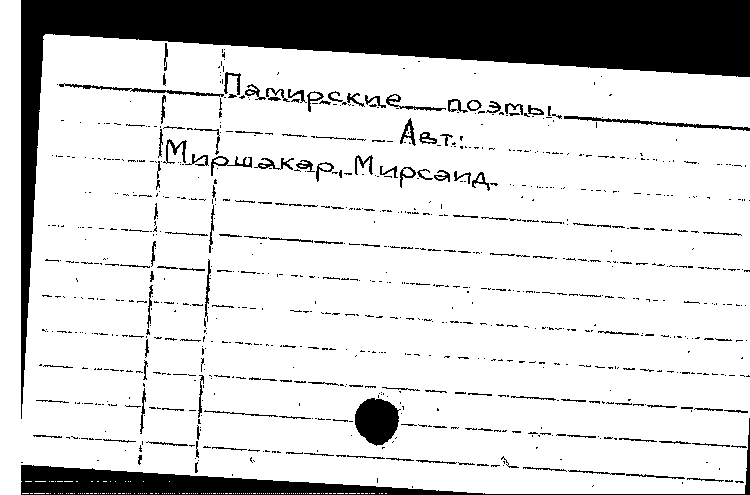 Памирские поэмы.
Авт.:
Миршакар, Мирсаид.